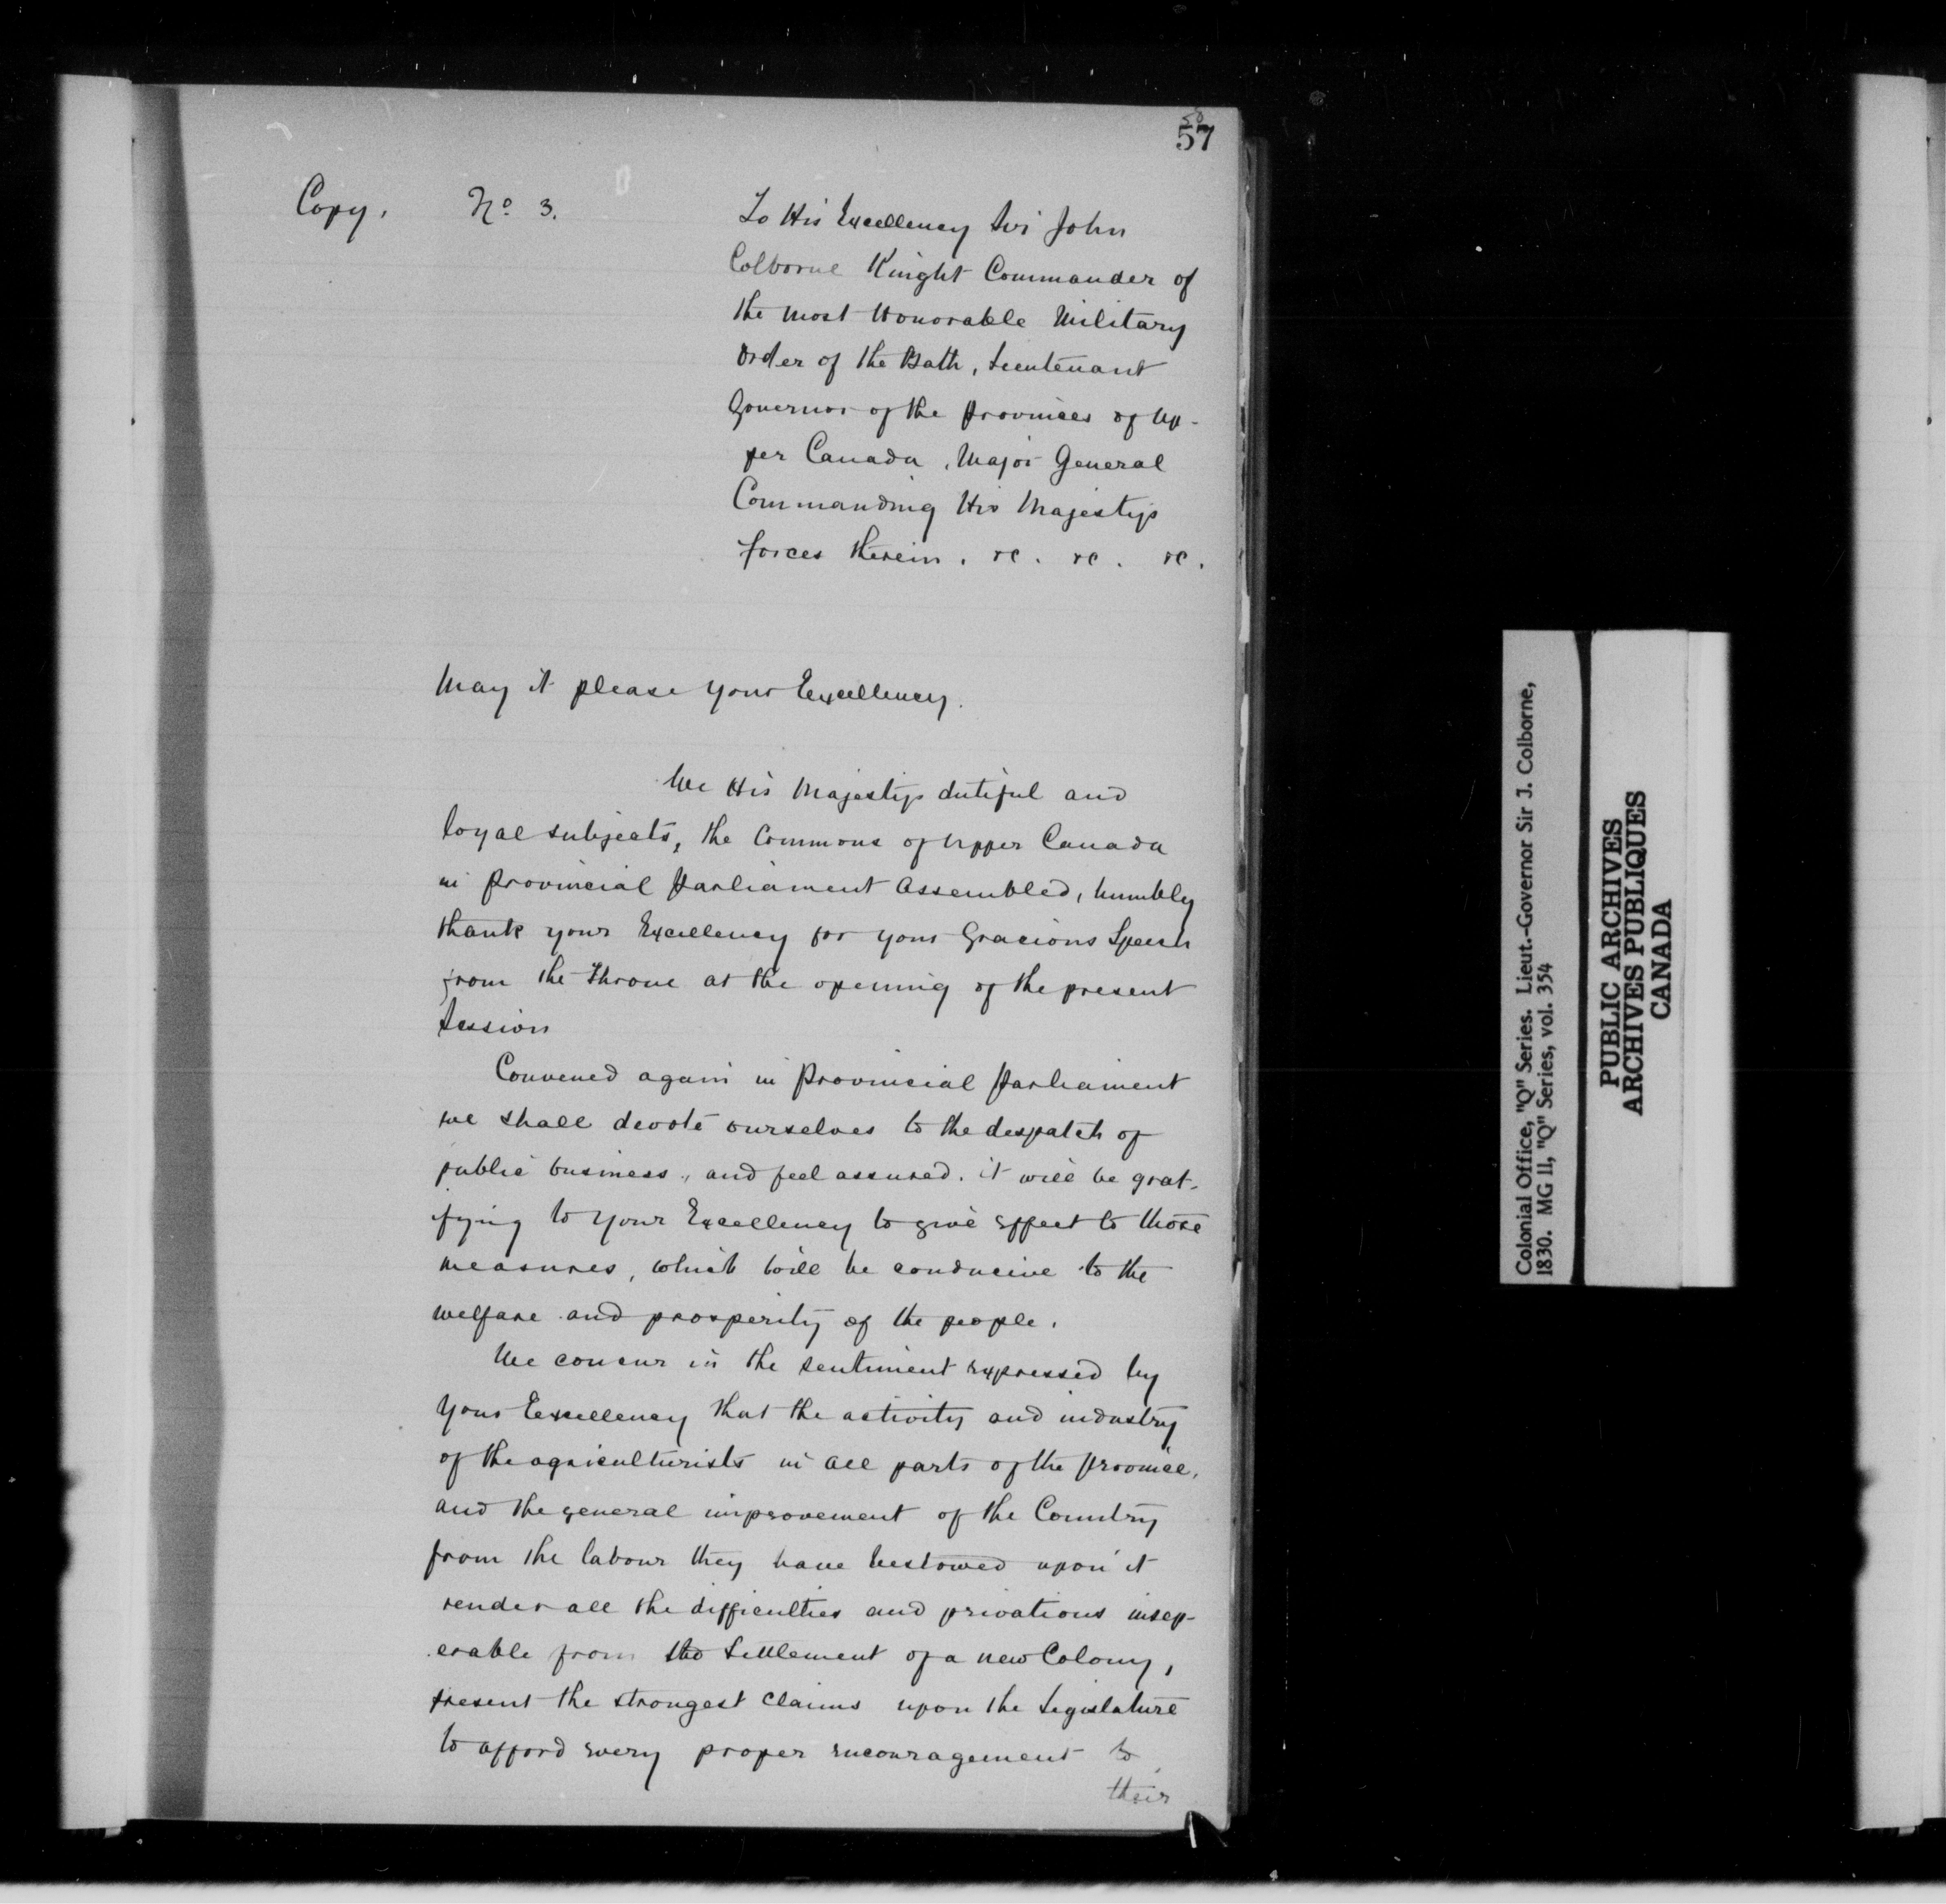 50
57
Copy. No. 3.
To His Excellency Sir John
Colborne Knight Commander of
the most Honorable Military
Order of the Bath, Lieutenant
Governor of the Provinces of Up-
per Canada, Major General
Commanding His Majestys
forces therein. &c. &c. &c.
May it please your Excellency.
We His Majestys dutiful and
loyal subjects, the Commons of Upper Canada
in Provincial Parliament assembled, humbly
thank your Excellency for your Gracious Speech
from the Throne at the opening of the present
Session
Convened again in Provincial Parliament
we shall devote ourselves to the despatch of
public business, and feel assured. it will be grat-
ifying to your Excellency to give effect to those
measures, which will be conducive to the
welfare and prosperity of the people.
We concur in the sentiment expressed by
your Excellency that the activity and industry
of the agriculturists in all parts of the province,
and the general improvement of the Country
from the labour they have bestowed upon it
render all the difficulties and privations insep-
erable from the Settlement of a new Colony,
present the strongest claims upon the Legislature
to afford every proper encouragement to
their
Colonial Office, "Q" Series. Lieut.-Governor Sir J. Colborne,
1830. MG 11, "Q" Series, vol. 354
PUBLIC ARCHIVES
ARCHIVES PUBLIQUES
CANADA